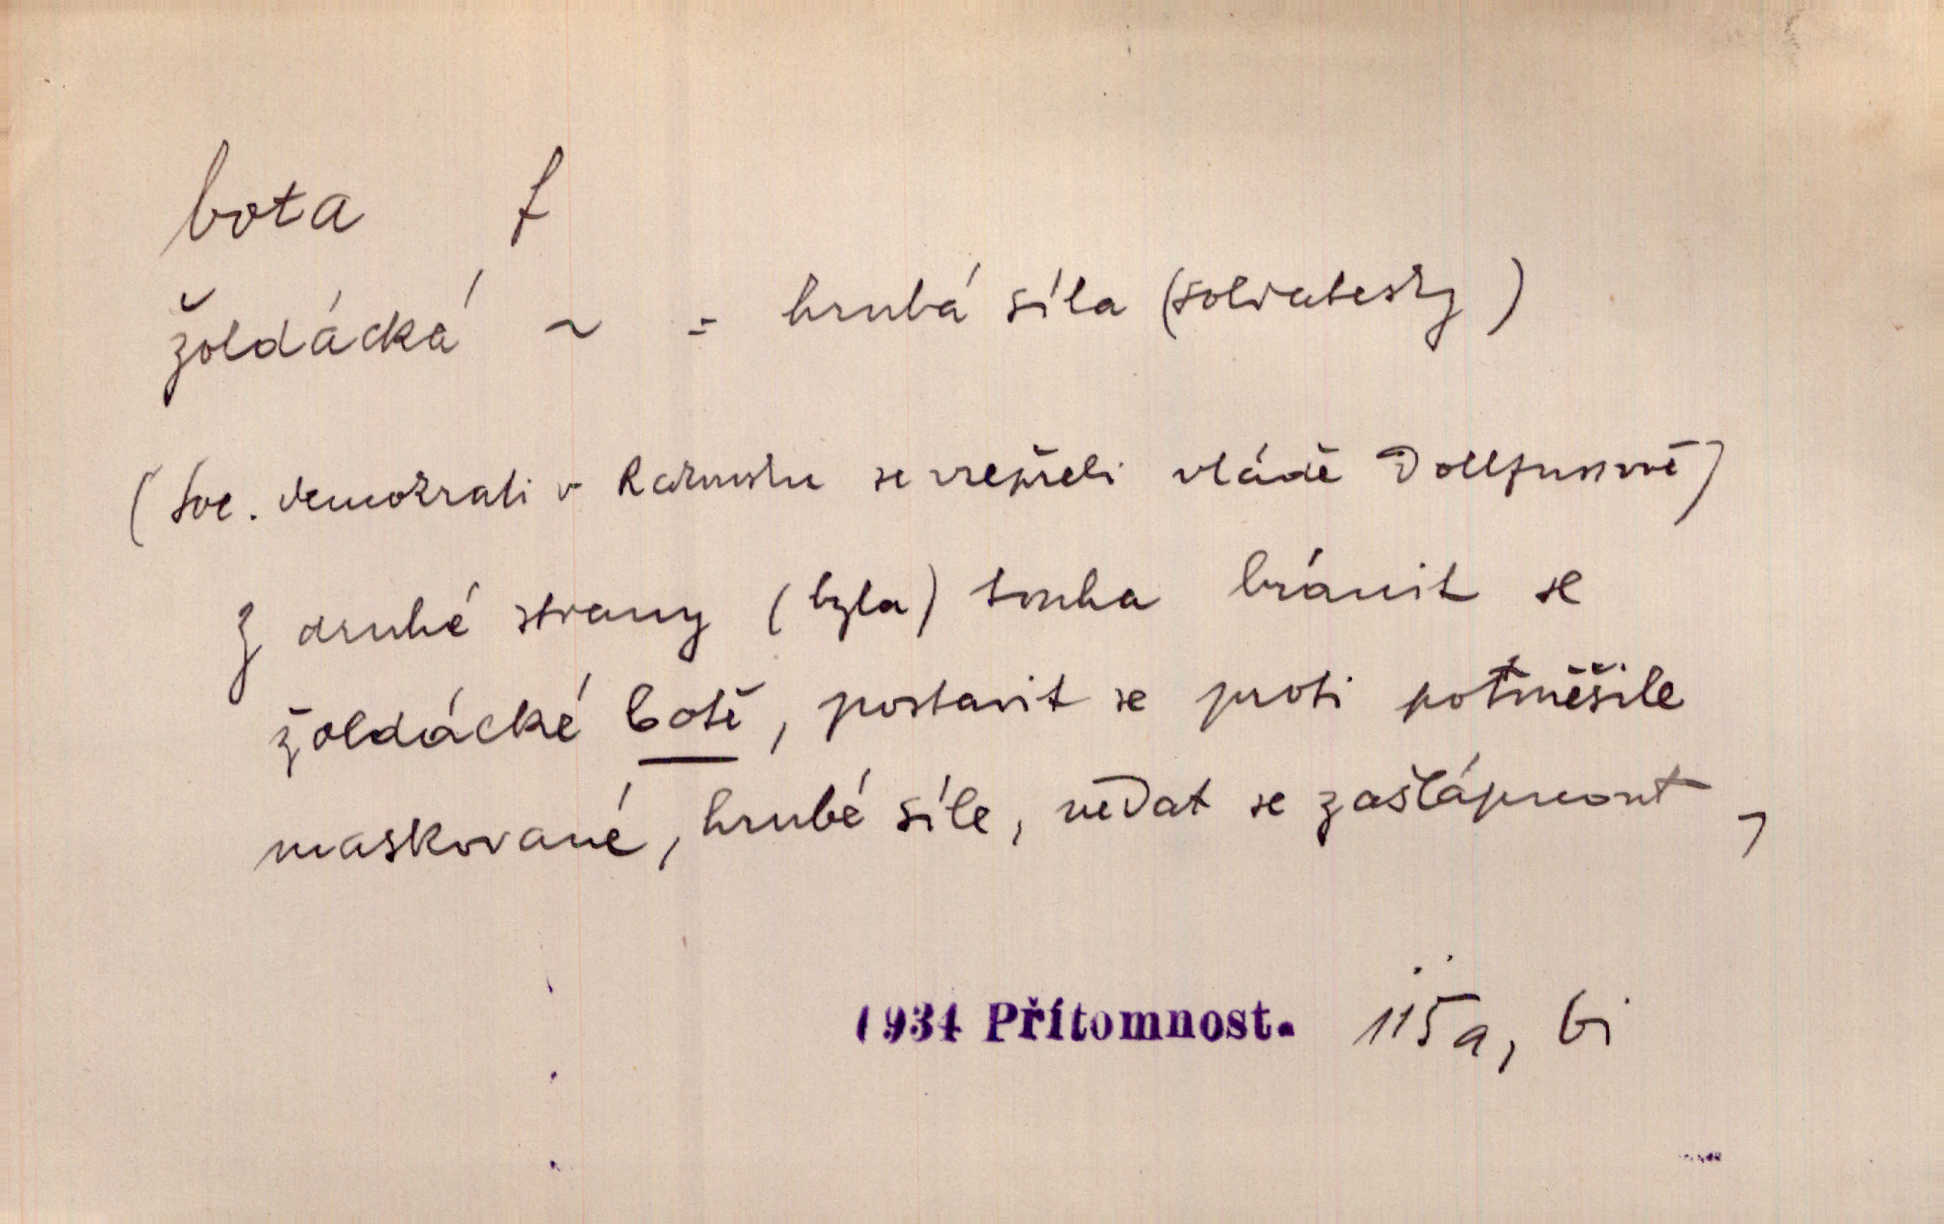 bota f
žoldácká ~ = hrubá síla (soldatesky)
(Soc. demokrati v Rakousku se vzepřeli vládě Dollfussově)
Z druhé strany (byla) touha bránit se
žoldácké botě, postavit se proti potměšile
maskované, hrubé síle, nedat se zašlápnout,
1934 Přítomnost. 115a, bi